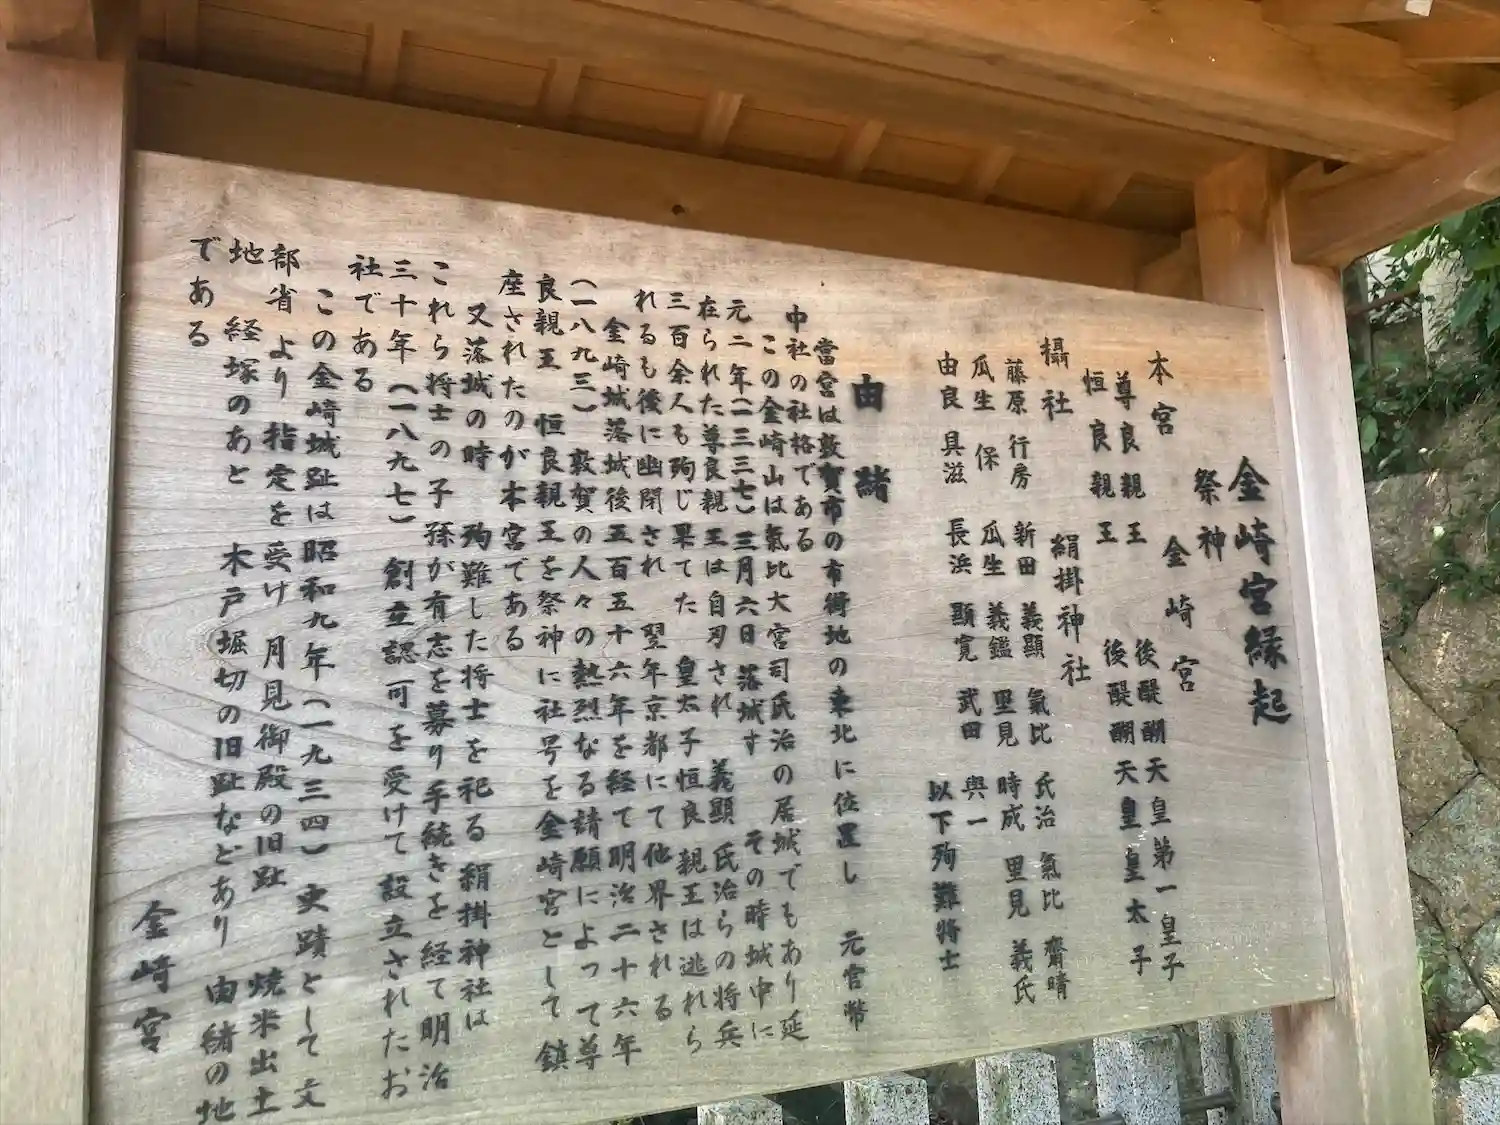 金崎宮縁起
祭神
金崎宮
本宮
尊良親王 後醍醐天皇第一皇子
恒良親王 後醍醐天皇皇太子
攝社 絹掛神社
藤原行房 新田義顯 氣比氏治 氣比齋晴
瓜生保 瓜生義鑑 里見時成 里見義氏
由良具滋 長浜顯寛 武田與一 以下殉難将士
由緒
當宮は敦賀市の市街地の東北に位置し 元官幣
中社の社格である
この金崎山は氣比大宮司氏治の居城でもあり延
元二年(一三三七)三月六日 落城す その時城中に
在られた尊良親王は自刃され 義顯 氏治らの将兵
三百余人も殉じ果てた 皇太子恒良親王は逃れら
れるも後に幽閉され 翌年京都にて他界される
金崎城落城後五百五十六年を経て明治二十六年
(一八九三)敦賀の人々の熱烈なる請願によって尊
良親王 恒良親王を祭神に社号を金崎宮として 鎮
座されたのが本宮である
又落城の時 殉難した将士を祀る絹掛神社は
これら将士の子孫が有志を募り手続きを経て明治
三十年(一八九七)創立認可を受けて設立されたお
社である
この金崎城趾は昭和九年(一九三四)史蹟として文
部省より指定を受け 月見御殿の旧趾 焼米出土
地 経塚のあと 木戸堀切の旧趾などあり 由緒の地
である
金崎宮